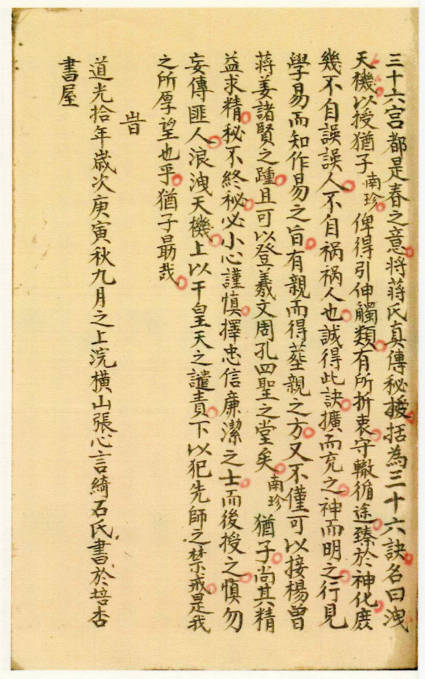 三十六宮都是春之意將蔣氏真傳秘援括為三十六訣名曰洩
天機以授猶子南珍俾得引伸觸類有所折衷守轍循途臻於神化庶
幾不自誤誤人不自禍禍人也誠得此訣擴而充之神而明之行見
學易而知作易之旨有親而得塟親之方又不僅可以接楊曾
蔣姜諸賢之踵且可以登羲文周孔四聖之堂矣南珍猶子尚其精
益求精秘不終秘必小心謹慎擇忠信廉潔之士而後授之慎勿
妄傳匪人浪洩天機上以干皇天之譴責下以犯先師之禁戒是我
之所厚望也乎猶子勗哉
旹
道光拾年歲次庚寅秋九月之上浣橫山張心言綺石氏書於培杏
書屋